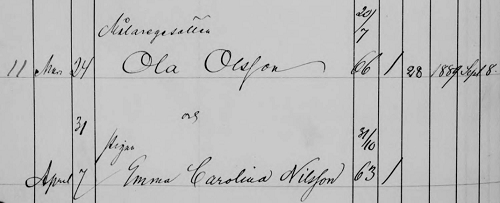 20/7
Målaregesällen
11 Mars 24 Ola Olsson 66 1 28 1889 Sept. 8.
31 och
Pigan 31/10
April 7 Emma Carolina Nilsson 63 1